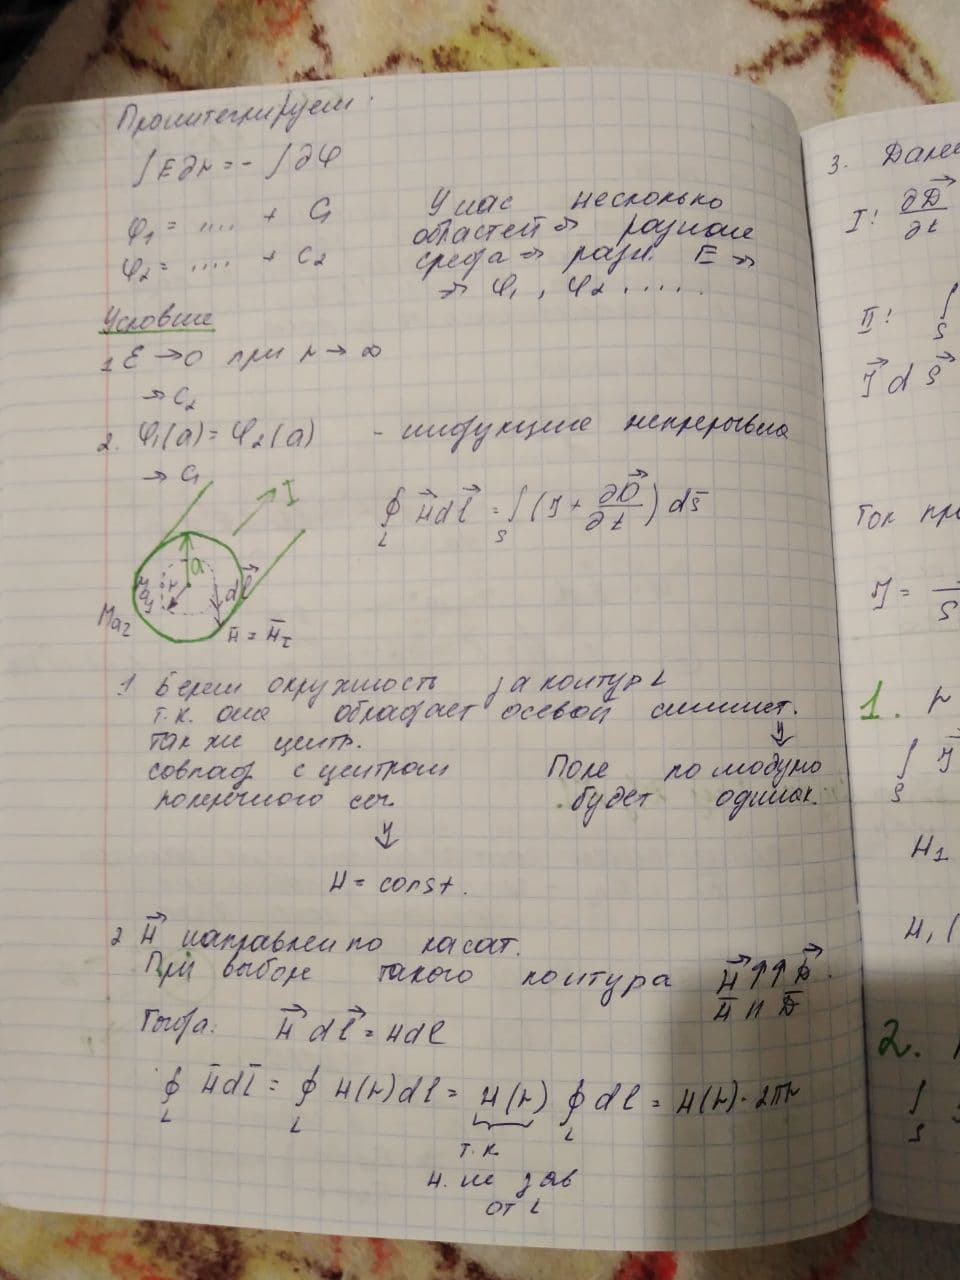 Проинтегрируем:
∫E∂r = - ∫∂φ
φ₁ = .... + C₁
φ₂ = .... + C₂
У нас несколько
областей ⇒ разная
среда ⇒ разн. E ⇒
⇒ φ₁, φ₂ .....
Условие
1 E → 0 при r → ∞
→ C₂
2. φ₁(a) = φ₂(a) - непрерывна
→ C₁
I
a
r
dl⃗
Ma₂
H̄ = H̄τ
∮L H⃗dl⃗ = ∫S (J + ∂D⃗/∂t) ds̄
1 Берем окружность за контур L
т.к. она обладает осевой симмет.
также центр.
совпад с центром
поперечного сеч.
Поле по модулю
будет одинак.
H = const.
2 H⃗ направлен по касат.
При выборе такого контура H⃗ ↑↑ D⃗.
H̄ и D̄
Тогда: H⃗ dl⃗ = Hdl
∮L H̄dl̄ = ∮L H(r)dl = H(r) ∮L dl = H(r)·2πr
т.к
H. не зав
от L
3. Далее
I: ∂D⃗/∂t
II: ∫S
J⃗ d S⃗
Ток
J =
S
1. r
∫S J⃗
H₁
H₁(
2.
∫S